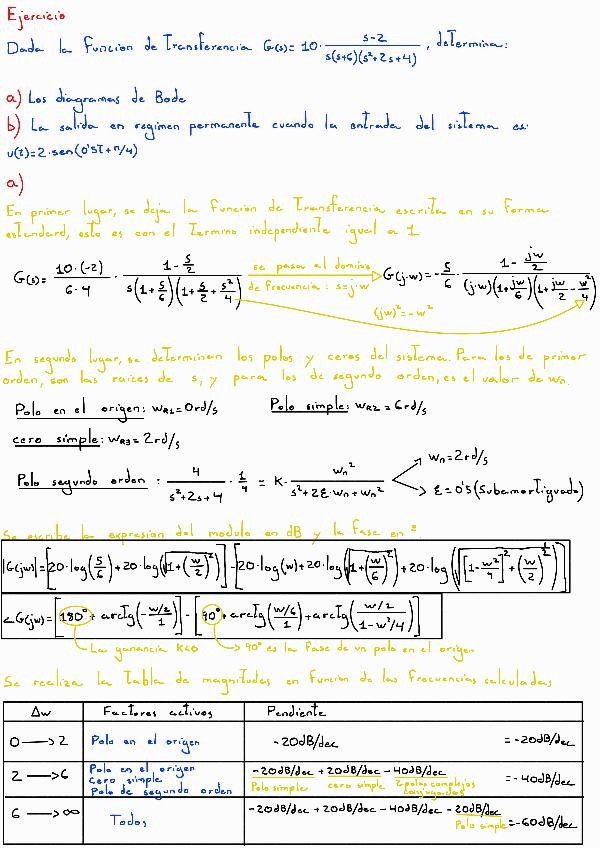 Ejercicio
Dada la función de Transferencia G(s)= 10· (s-2)/(s(s+6)(s²+2s+4)), determina:
a) Los diagramas de Bode
b) La salida en regimen permanente cuando la entrada del sistema es:
u(t)=2·sen(0'5t+π/4)
a)
En primer lugar, se deja la función de Transferencia escrita en su forma
estandard, esto es con el Termino independiente igual a 1
G(s)= (10·(-2))/(6·4) · (1-s/2)/(s(1+s/6)(1+s/2+s²/4)) se pasa al dominio de frecuencia: s=j·w G(j·w)=-5/6 · (1-jw/2)/((j·w)(1+jw/6)(1+jw/2-w²/4))
(jw)²=-w²
En segundo lugar, se determinan los polos y ceros del sistema. Para los de primer
orden, son las raices de s, y para los de segundo orden, es el valor de wn.
Polo en el origen: wR1=0rd/s Polo simple: wR2=6rd/s
cero simple: wR3=2rd/s
Polo segundo orden : 4/(s²+2s+4) · 1/4 = K· wn²/(s²+2ξ·wn+wn²) wn=2rd/s
ξ=0'5(Subamortiguado)
Se escribe la expresion del modulo en dB y la fase en º
|G(jw)|=[20·log(5/6)+20·log(√(1+(w/2)²))]-[20·log(w)+20·log(√(1+(w/6)²))+20·log(√([1-w²/4]²+(w/2)²))]
∠G(jw)=[180°+arctg(-w/2/1)]-[90°+arctg(w/6/1)+arctg(w/2/(1-w²/4))]
La ganancia K<0 90° es la fase de un polo en el origen
Se realiza la Tabla de magnitudes en funcion de las frecuencias calculadas
Δw Factores activos Pendiente
0 → 2 Polo en el origen -20dB/dec =-20dB/dec
2 → 6 Polo en el origen
cero simple
Polo de segundo orden
-20dB/dec + 20dB/dec - 40dB/dec =-40dB/dec
Polo simple cero simple 2 polos complejos
conjugados
6 → ∞ Todos -20dB/dec + 20dB/dec - 40dB/dec - 20dB/dec =-60dB/dec
Polo simple